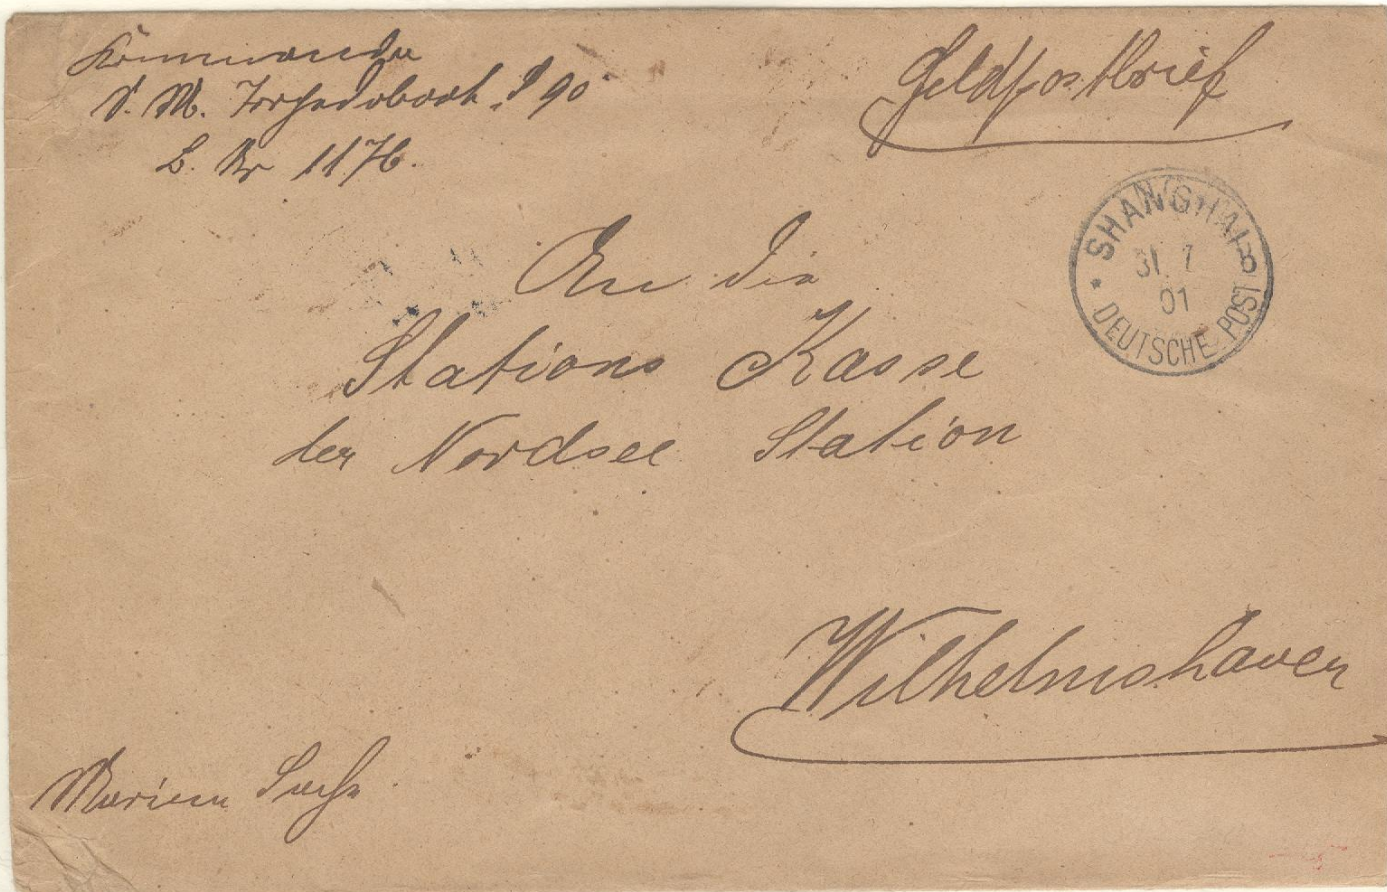 Kommando
S. M. Torpedoboot S 90
B. Nr 1176.
Feldpostbrief
SHANGHAI
31. 7
01
DEUTSCHE POST
An die
Stations Kasse
der Nordsee Station
Wilhelmshaven
Marine Sache